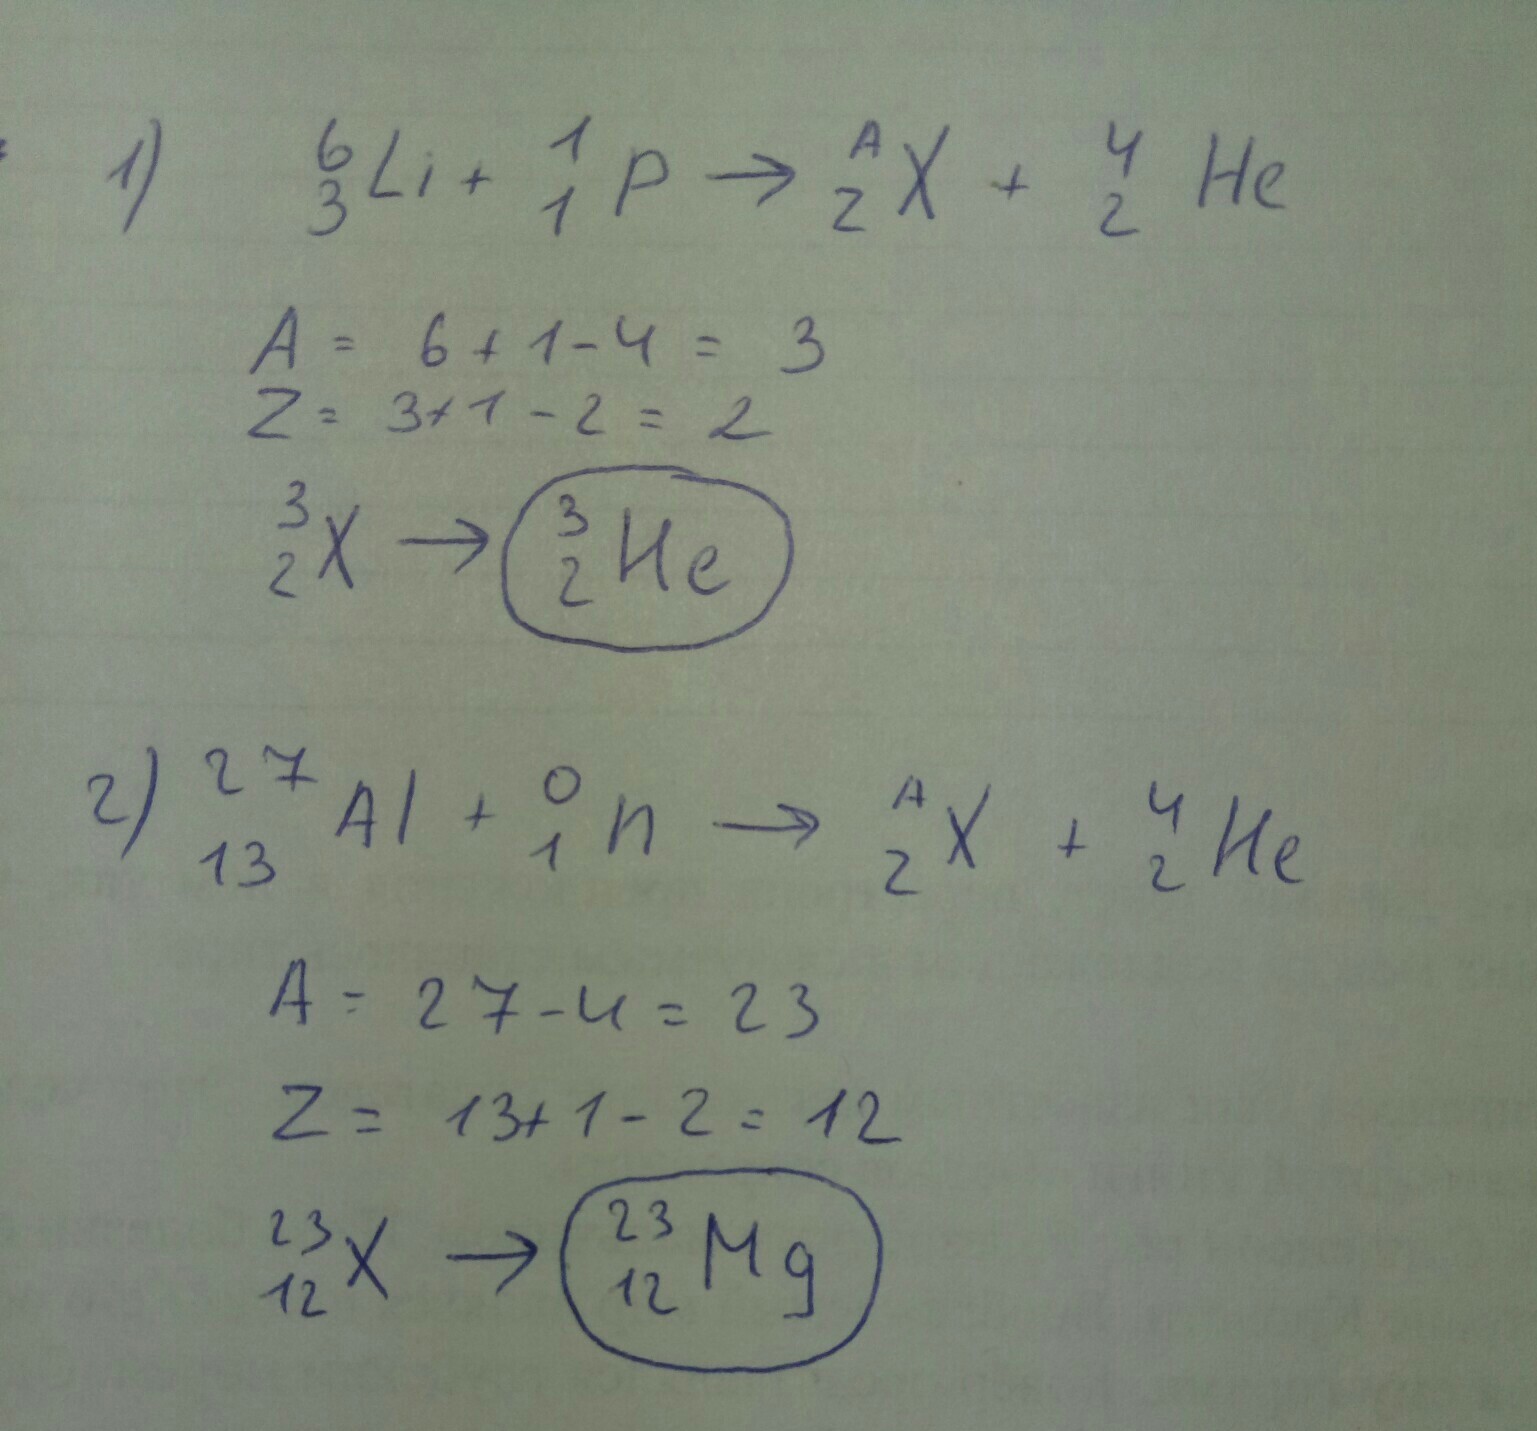 1) ⁶₃Li + ¹₁p → ᴬ_Z X + ⁴₂He
A = 6 + 1 - 4 = 3
Z = 3 + 1 - 2 = 2
³₂X → ³₂He
2) ²⁷₁₃Al + ⁰₁n → ᴬ_Z X + ⁴₂He
A = 27 - 4 = 23
Z = 13 + 1 - 2 = 12
²³₁₂X → ²³₁₂Mg